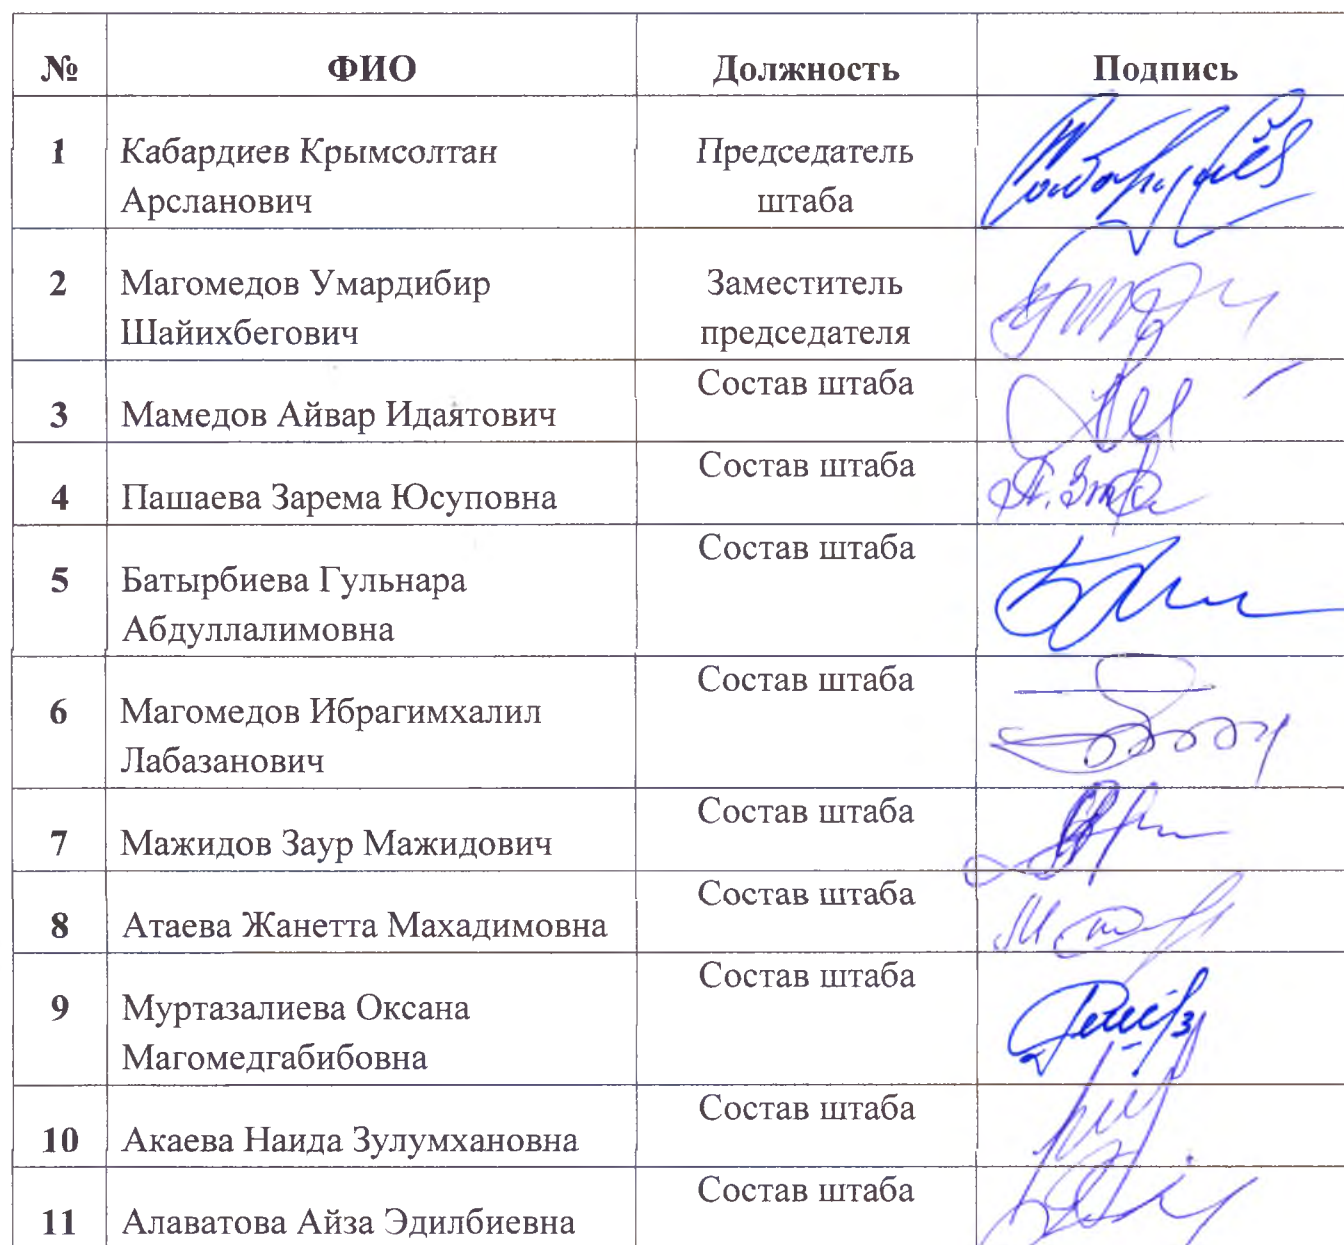 № ФИО Должность Подпись
1 Кабардиев Крымсолтан Председатель
Арсланович штаба
2 Магомедов Умардибир Заместитель
Шайихбегович председателя
Состав штаба
3 Мамедов Айвар Идаятович
Состав штаба
4 Пашаева Зарема Юсуповна
Состав штаба
5 Батырбиева Гульнара
Абдуллалимовна
Состав штаба
6 Магомедов Ибрагимхалил
Лабазанович
Состав штаба
7 Мажидов Заур Мажидович
Состав штаба
8 Атаева Жанетта Махадимовна
Состав штаба
9 Муртазалиева Оксана
Магомедгабибовна
Состав штаба
10 Акаева Наида Зулумхановна
Состав штаба
11 Алаватова Айза Эдилбиевна